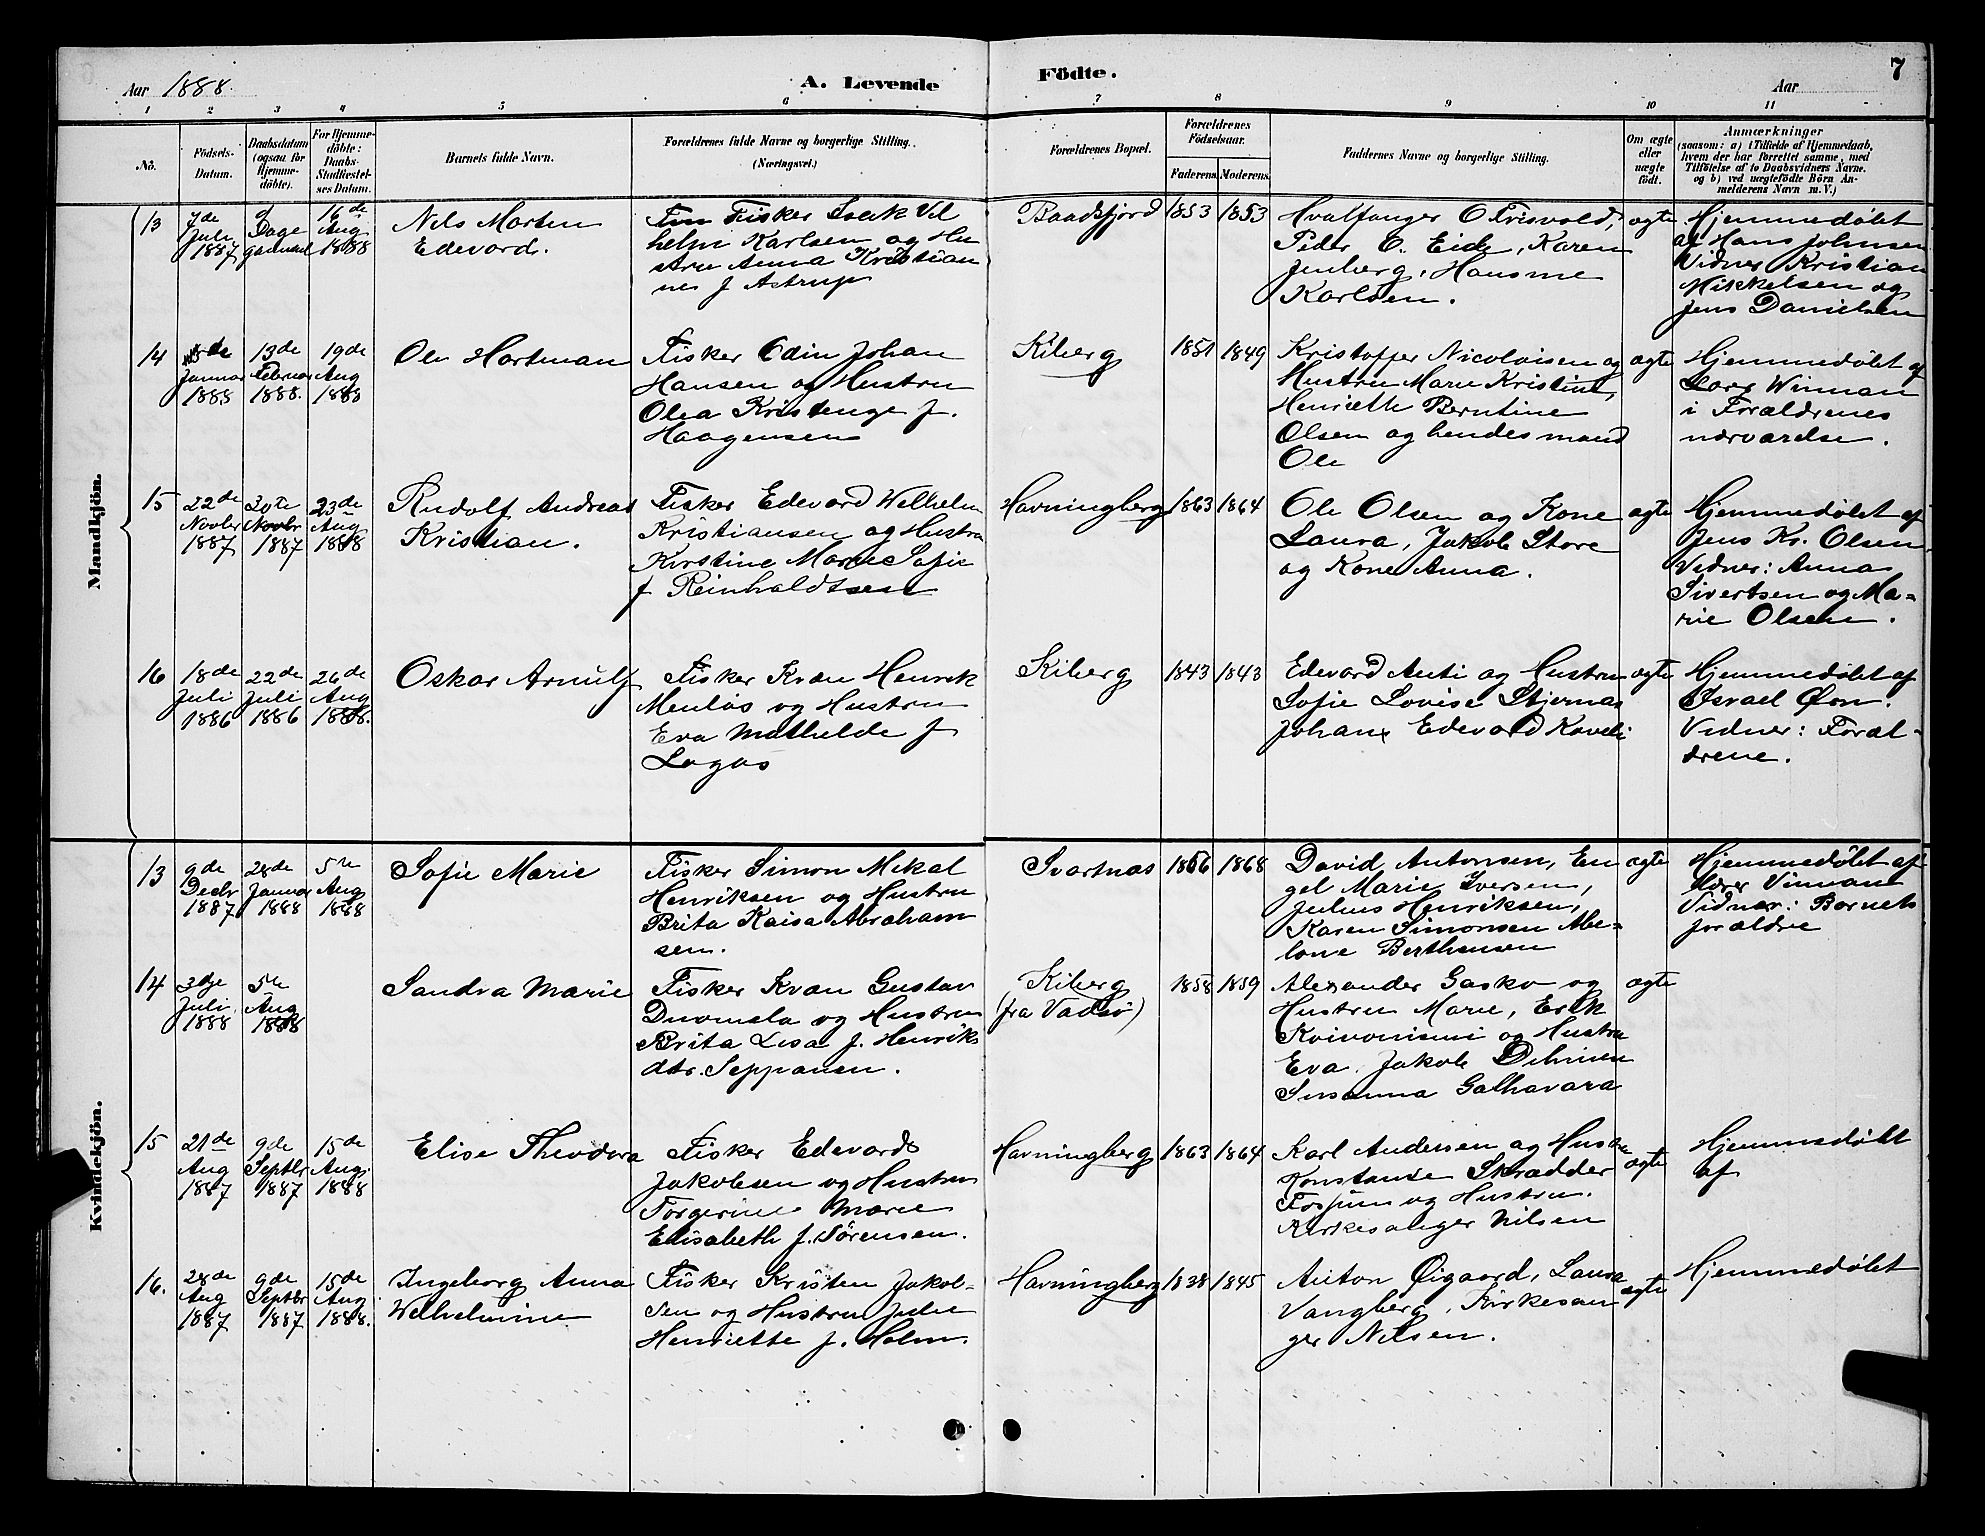 Aar 1888.
A. Levende
Födte.
Aar
7
1 2 3 4 5 6 7 8 9 10 11
No.
Födsels-
Datum.
Daabsdatum
(ogsaa for
Hjemme-
döbte).
For Hjemme-
döbte:
Daabs-
Stadfæstel-
ses Datum.
Barnets fulde Navn.
Forældrenes fulde Navne og borgerlige Stilling.
(Næringsvei.)
Forældrenes Bopæl.
Forældrenes
Födselsaar.
Faderens. Moderens.
Faddernes Navne og borgerlige Stilling.
Om ægte
eller
uægte
födt.
Anmærkninger
(saasom: a) i Tilfælde af Hjemmedaab,
hvem der har forrettet samme, med
Tilföielse af to Daabsvidners Navne.
og b) ved uægtefödte Börn An-
melderens Navn m. V.)
Mandkjön.
13
7de
Juli
1887
Dage
gammel
16de
Aug
1888
Nils Morten
Edevard.
Fisker Isak Vil
helm Karlsen og Hu
stru Anna Kristian
ne f Astrup
Baadsfjord
1853
1853
Hvalfanger O Frisvold,
Peder C. Eide, Karen
Jenberg, Hansine
Karlsen.
ægte
Hjemmedøbt
af Hans Johnsen
Vidner Kristian
Mikkelsen og
Jens Danielsen
14
Januar
1888
13de
Februar
1888.
19de
Aug
1888
Ole Hartman
Fisker Odin Johan
Hansen og Hustru
Olea Kristenge f.
Haagensen
Kiberg
1851
1849
Kristoffer Nicolaisen og
Hustru Marie Kristine,
Henriette Berntine
Olsen og hendes mand
Ole
ægte
Hjemmedøbt af
Lars Winman
i Forældrenes
nærværelse.
15
22de
Novbr
1887
30te
Novbr
1887
23de
Aug
1888
Rudolf Andreas
Kristian.
Fisker Edevard Welhelm
Kristiansen og Hustru
Kirstine Marie Sofie
f Reinholdtsen
Havningberg
1863
1864
Ole Olsen og Kone
Laura, Jakob Store
og Kone Anna.
ægte
Hjemmedøbt af
Jens Kr. Olsen.
Vidner: Anna
Sivertsen og Ma-
rie Olsen.
16
18de
Juli
1886
22de
Juli
1886
26de
Aug
1888.
Oskar Arnulf
Fisker Kvæn Henrik
Menlös og Hustru
Eva Mathilde f
Lagas
Kiberg
1843
1843
Edevard Anti og Hustru
Sofie Lovise Stjerna
Johan Edevard
ægte
Hjemmedøbt af
Israel Øen.
Vidner: Foræl-
drene.
Kvindekjön.
13
9de
Decbr
1887
28de
Januar
1888
5te
Aug
1888
Sofie Marie
Fisker Simon Mekal
Henriksen og Hustru
Brita Kaisa Abraham
sen.
Svartnæs
1866
1868
David Antonsen, En
gel Marie Iversen,
Julius Henriksen,
Karen Simonsen Abe-
lone Berthensen
ægte
Hjemmedøbt af
Lærer Vinman
Vidner: Barnets
forældre
14
3dje
Juli
1888
5te
Aug
1888
Sandra Marie
Fisker Kvæn Gustav
Duomela og Hustru
Brita Lisa f. Henriks
dtr. Seppanen.
Kiberg
(fra Vadsø)
1858
1859
Alexander Gasko og
Hustru Marie, Erik
Koivoniemi og Hustru
Eva, Jakob
Susanna Galhavara
ægte
15
21de
Aug
1887
9de
Septbr
1887
15de
Aug.
1888
Elise Theodora
Fisker Edevard
Jakobsen og Hustru
Torgerine Marie
Elisabeth f. Sörensen.
Havningberg
1863
1864
Karl Andersen og Hustru
Konstanse Skrædder
Fosjum og Hustru.
Kirkesanger Nilsen
ægte
Hjemmedøbt
af
16.
28de
Aug
1887
9de
Septbr
1887
15de
Aug
1888.
Ingeborg Anna
Welhelmine
Fisker Kristen Jakob-
sen og Hustru Julie
Henriette f. Holm.
Havningberg
1838
1845
Anton Øigaard, Laura
Vangberg, Kirkesan
ger Nilsen.
ægte
Hjemmedøbt